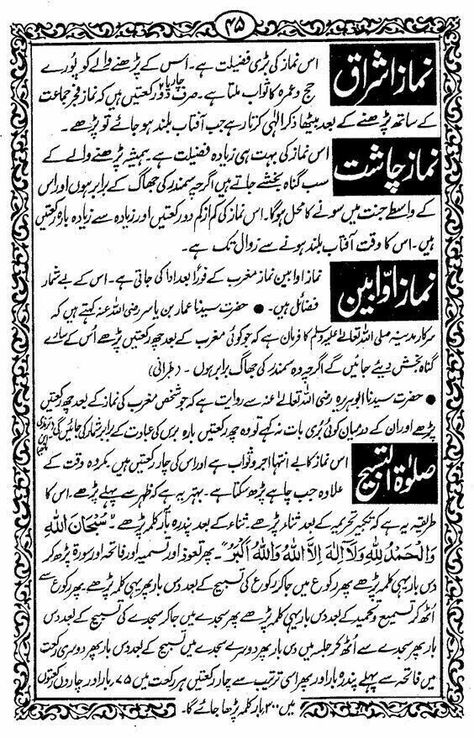 ۴۵
نماز اشراق
اس نماز کی بڑی فضیلت ہے۔ اس کے پڑھنے والے کو پورے
حج و عمرہ کا ثواب ملتا ہے۔ صرف دو یا چار رکعتیں ہیں کہ نماز فجر جماعت
کے ساتھ پڑھنے کے بعد بیٹھا ذکر الٰہی کرتا رہے جب آفتاب بلند ہو جائے تو پڑھے۔
نماز چاشت
اس نماز کی بہت ہی زیادہ فضیلت ہے۔ ہمیشہ پڑھنے والے کے
سب گناہ بخشے جاتے ہیں اگرچہ سمندر کی جھاگ کے برابر ہوں اور اس
کے واسطے جنت میں سونے کا محل ہوگا۔ اس نماز کی کم از کم دو رکعتیں اور زیادہ سے زیادہ بارہ رکعتیں
ہیں۔ اس کا وقت آفتاب بلند ہونے سے زوال تک ہے۔
نماز اوّابین
نماز اوابین نماز مغرب کے فوراً بعد ادا کی جاتی ہے۔ اس کے بے شمار
فضائل ہیں۔ • حضرت سیدنا عمار بن یاسر رضی اللہ عنہ کہتے ہیں کہ
سرکار مدینہ صلی اللہ تعالیٰ علیہ وسلم کا فرمان ہے کہ جو کوئی مغرب کے بعد چھ رکعتیں پڑھے اُس کے سارے
گناہ بخش دیئے جائیں گے اگرچہ وہ سمندر کی جھاگ برابر ہوں۔ (طبرانی)
• حضرت سیدنا ابوہریرہ رضی اللہ تعالیٰ عنہ سے روایت ہے کہ جو شخص مغرب کی نماز کے بعد چھ رکعتیں
پڑھے اور ان کے درمیان کوئی بُری بات نہ کہے تو وہ چھ رکعتیں بارہ برس کی عبادت کے برابر شمار کی جائیں گی۔
صلوٰۃ التسبیح
اس نماز کا بے انتہا اجر و ثواب ہے اور اس کی چار رکعتیں ہیں۔ مکروہ وقت کے
علاوہ جب چاہے پڑھ سکتا ہے۔ بہتر یہ ہے کہ ظہر سے پہلے پڑھے۔ اس کا
طریقہ یہ ہے کہ تکبیر تحریمہ کے بعد ثنا پڑھے۔ ثناء کے بعد پندرہ بار کلمہ پڑھے۔ سُبْحَانَ اللهِ
وَالْحَمْدُ لِلّٰهِ وَلَا اِلٰهَ اِلَّا اللهُ وَاللهُ اَكْبَرُ" ۔ پھر تعوذ اور تسمیہ اور فاتحہ اور سورۃ پڑھ کر
دس بار یہی کلمہ پڑھے پھر رکوع میں جا کر رکوع کی تسبیح کے بعد دس بار یہی کلمہ پڑھے۔ پھر رکوع سے
اُٹھ کر تسمیع و تحمید کے بعد دس بار کلمہ پڑھے۔ پھر سجدے میں جا کر سجدے کی تسبیح کے بعد دس
بار پھر سجدے سے اُٹھ کر جلسہ میں دس بار پھر دوسرے سجدے میں دس بار پھر دوسری رکعت
میں فاتحہ سے پہلے پندرہ بار اور پھر اسی ترتیب سے چار رکعتیں ہر رکعت میں ۷۵ بار اور چاروں رکعتوں
میں ۳۰۰ بار کلمہ پڑھا جائے گا۔